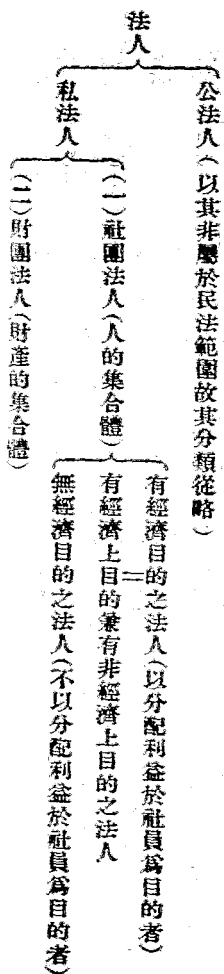 法人
公法人(以其非屬於民法範圍故其分類從略)
私法人
(一)社團法人(人的集合體)
有經濟目的之法人(以分配利益於社員爲目的者)
有經濟上目的兼有非經濟上目的之法人
無經濟目的之法人(不以分配利益於社員爲目的者)
(二)財團法人(財產的集合體)